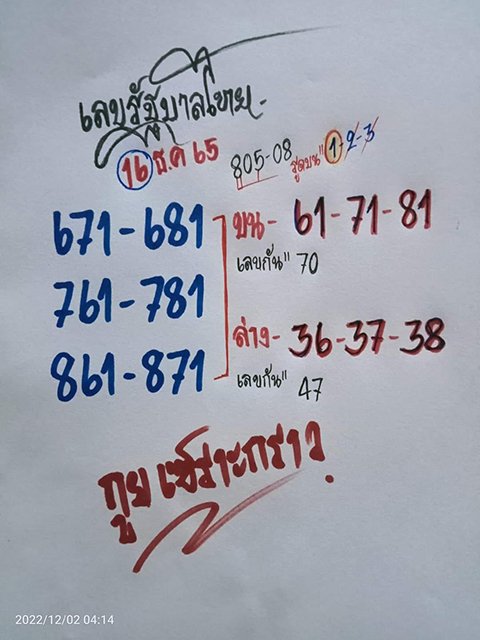 เลขรัฐบาลไทย.
16 ธ.ค 65 805-08 รูดบน" 1-2-3
671-681 บน- 61-71-81
เลขกัน" 70
761-781
ล่าง- 36-37-38
861-871 เลขกัน" 47
กูยเซราะกราว.
2022/12/02 04:14